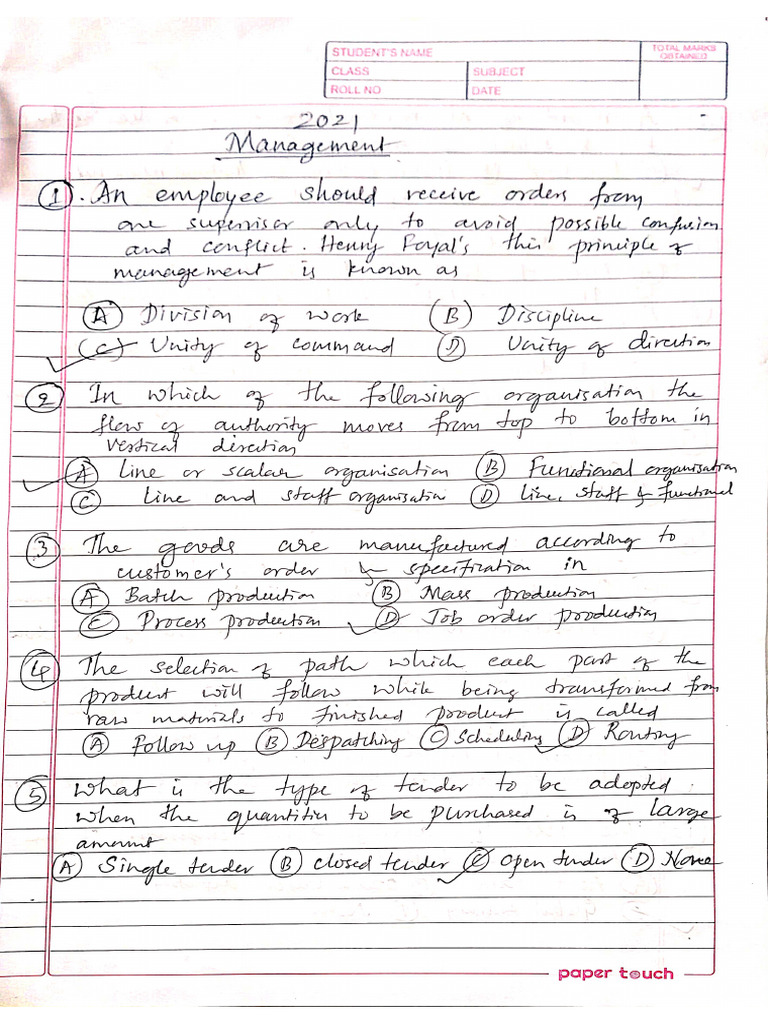 STUDENT'S NAME
TOTAL MARKS OBTAINED
CLASS
SUBJECT
ROLL NO
DATE
2021
Management
1. An employee should receive orders from
one supervisor only to avoid possible confusion
and conflict. Henry Foyal's this principle of
management is known as
(A) Division of work (B) Discipline
(C) Unity of command (D) Unity of direction
2 In which of the following organisation the
flow of authority moves from top to bottom in
vertical direction
(A) Line or scalar organisation (B) Functional organisation
(C) Line and staff organisation (D) Line, staff & functional
3 The goods are manufactured according to
customer's order & specification in
(A) Batch production (B) Mass production
(C) Process production (D) Job order production
4 The selection of path which each part of the
product will follow while being transformed from
raw materials to finished product is called
(A) Follow up (B) Despatching (C) Scheduling (D) Routing
5 What is the type of tender to be adopted
when the quantities to be purchased is of large
amount
(A) Single tender (B) closed tender (C) open tender (D) None
paper touch